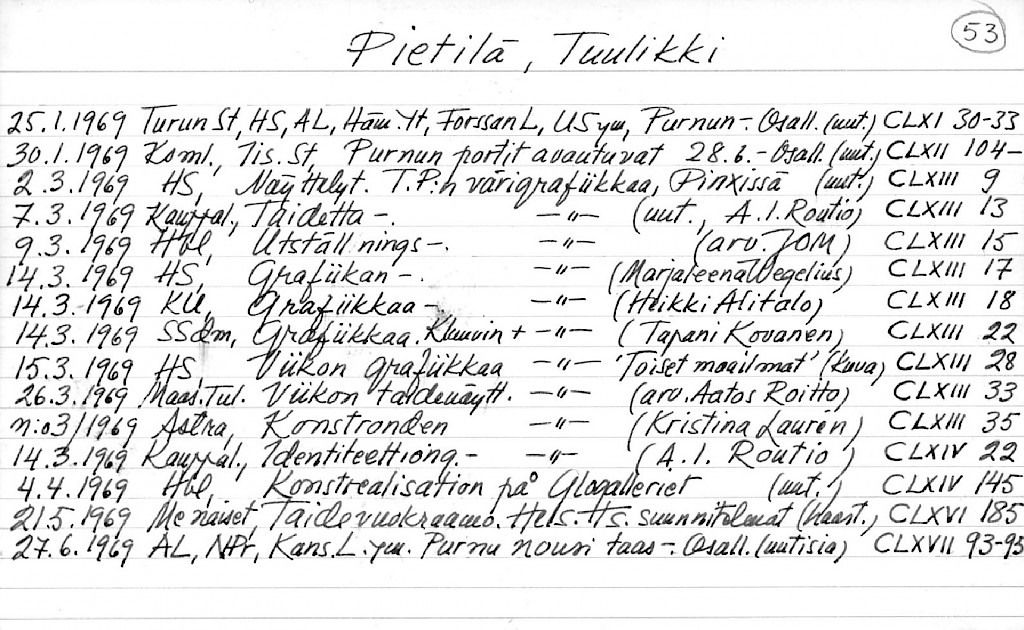 53
Pietilä, Tuulikki
25.1.1969 Turun St, HS, AL, Häm. Yt, Forssan L, US ym, Purnun-. Osall. (uut.) CLXI 30-33
30.1.1969 Koml., Tis. St, Purnun portit avautuvat 28.6.- Osall. (uut.) CLXII 104-
2.3.1969 HS, Näyttelyt. T.P:n värigrafiikkaa, Pinxissä (uut.) CLXIII 9
7.3.1969 Kauppal., Taidetta -. -"- (uut., A.I. Routio) CLXIII 13
9.3.1969 Hbl, Utställnings-. -"- (arv. JOM) CLXIII 15
14.3.1969 HS, Grafiikan-. -"- (Marjaleena Wegelius) CLXIII 17
14.3.1969 KU, Grafiikkaa- -"- (Heikki Alitalo) CLXIII 18
14.3.1969 SSdm, Grafiikkaa. Kluuvin + -"- (Tapani Kovanen) CLXIII 22
15.3.1969 HS, Viikon grafiikkaa -"- 'Toiset maailmat' (kuva) CLXIII 28
26.3.1969 Maas. Tul. Viikon taidenäytt. -"- (arv. Aatos Roitto) CLXIII 33
n:o 3/1969 Astra, Konstronden -"- (Kristina Laurén) CLXIII 35
14.3.1969 Kauppal., Identiteettiong.- -"- (A.I. Routio) CLXIV 22
4.4.1969 Hbl, Konstrealisation på Glogalleriet (uut.) CLXIV 145
21.5.1969 Me naiset, Taidevuokraamo. Hels. Hs. suunnitelmat (haast.) CLXVI 185
27.6.1969 AL, NPr, Kans. L. ym. Purnu nousi taas-. Osall. (uutisia) CLXVII 93-95